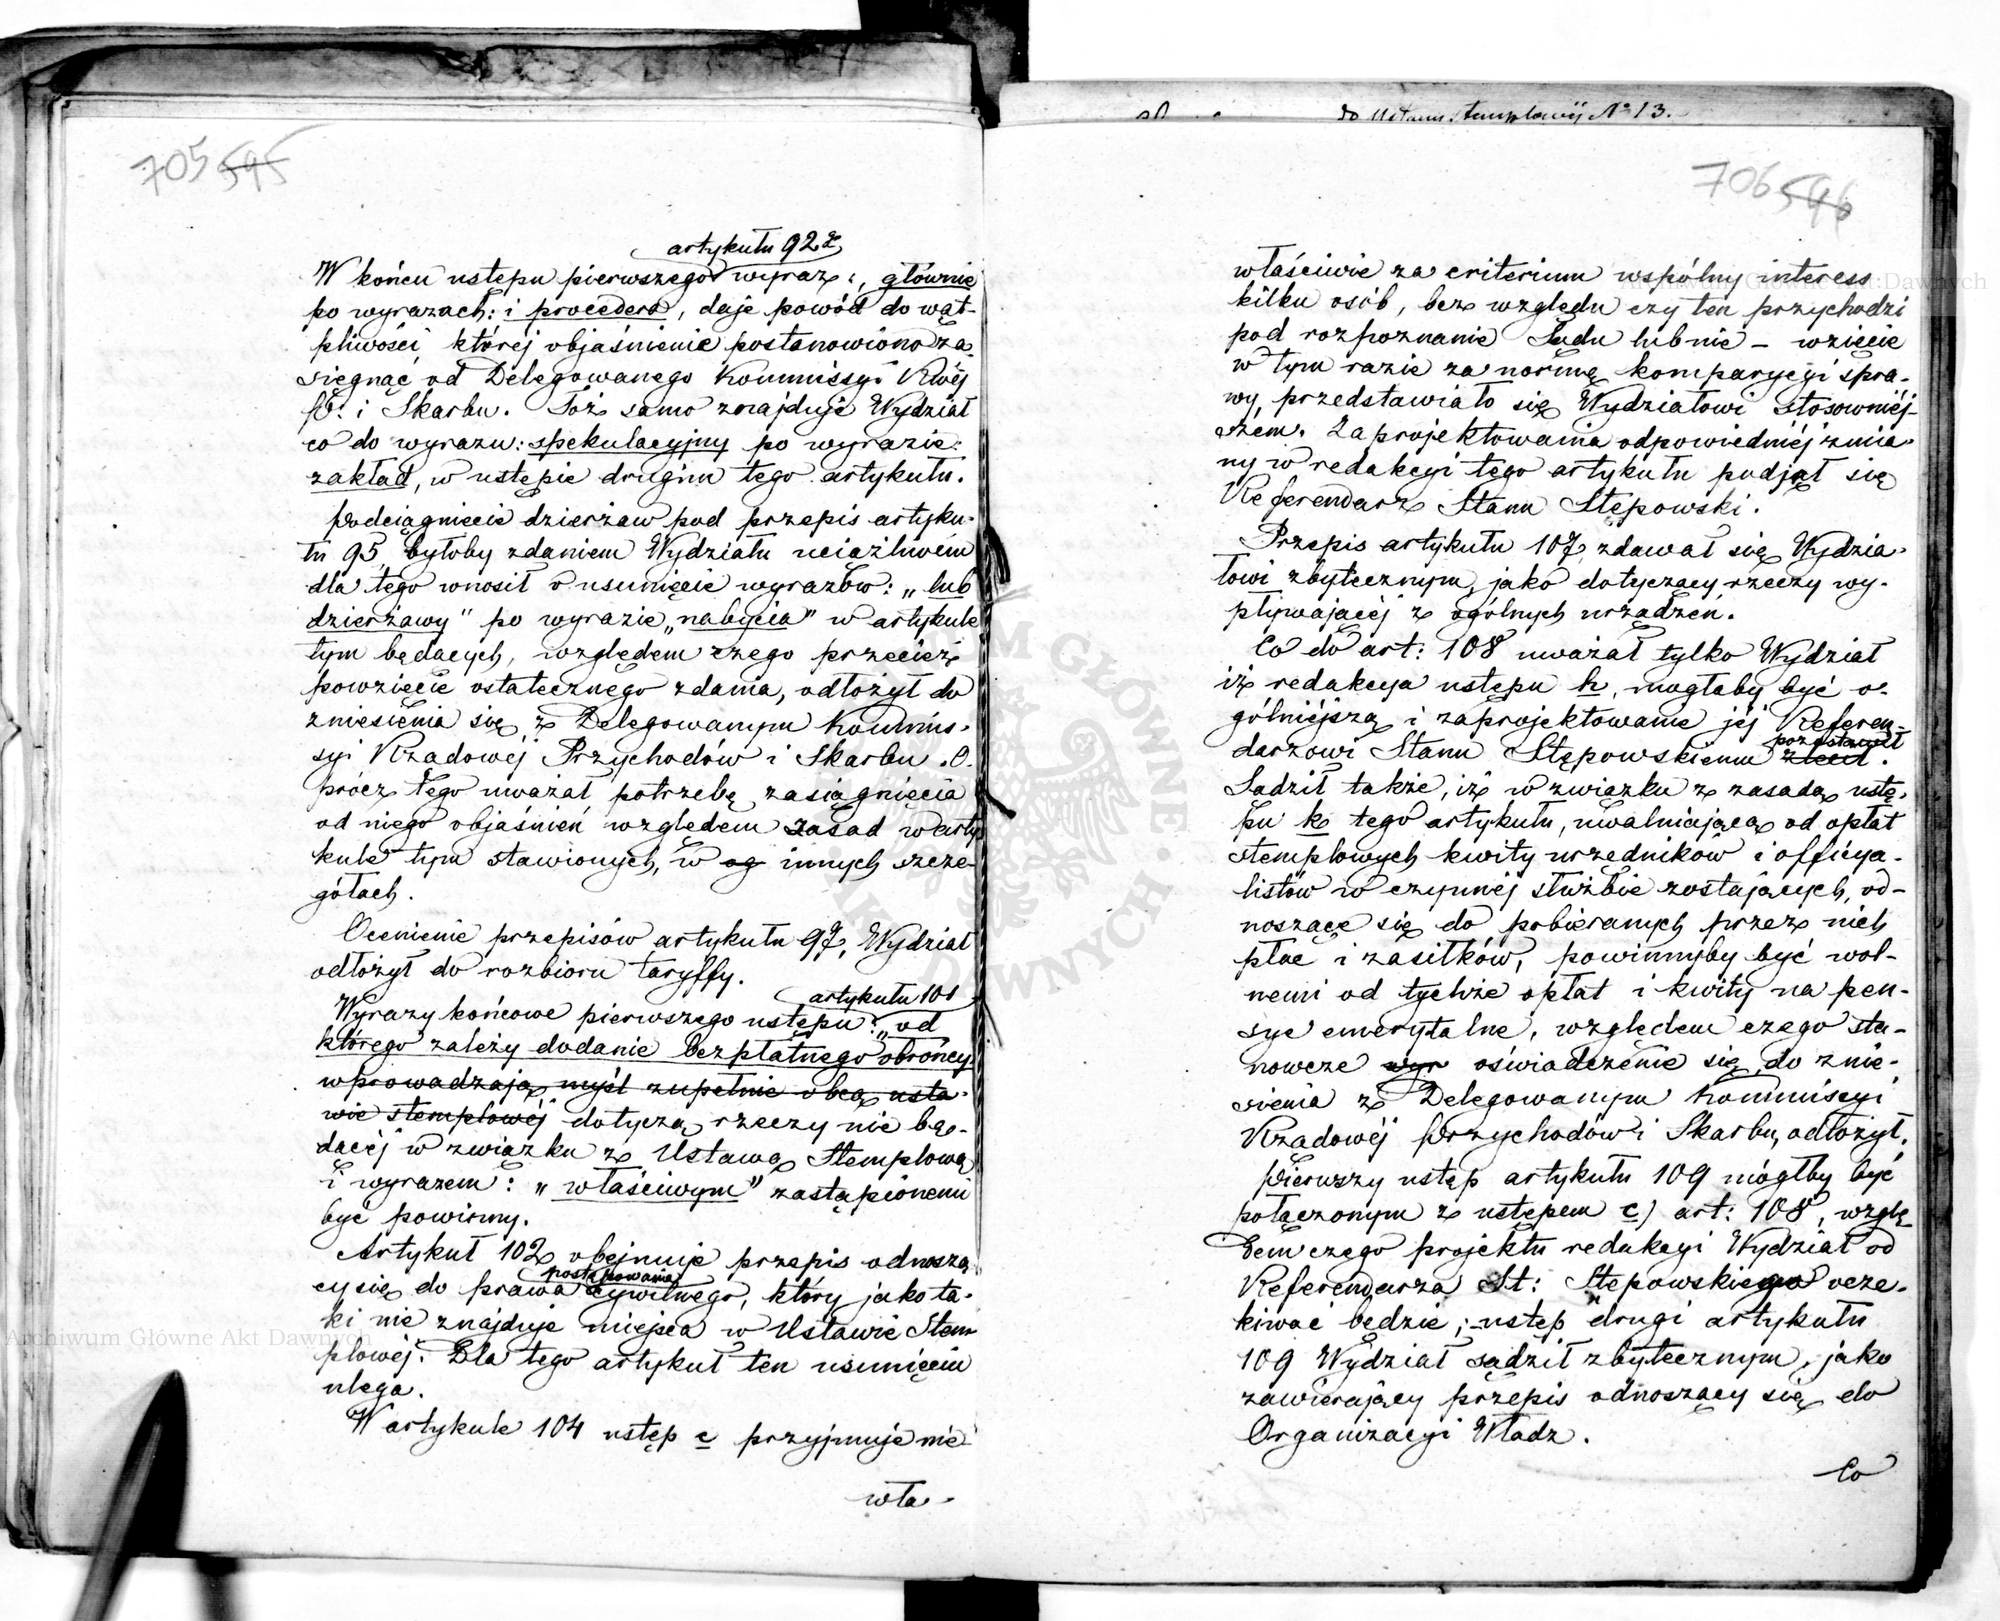 705 595
artykułu 92g
W końcu ustępu pierwszego wyraz:, głównie
po wyrazach: i procedera, daje powód do wąt-
pliwości, której objaśnienie postanowiono za-
sięgnąć od Delegowanego Kommissyi Rząd
P. i Skarbu. Toż samo znajduje Wydział
co do wyrazu: spekulacyjny po wyrazie:
zakład, w ustępie drugim tego artykułu.
Podciągnięcie dzierżaw pod przepis artyku-
łu 95 byłoby zdaniem Wydziału uciążliwém
dla tego wnosił o usunięcie wyrazów: „lub
dzierżawy" po wyrazie „nabycia" w artykule
tym będących, względem czego przecież
powzięcie ostatecznego zdania, odłożył do
zniesienia się z Delegowanym Kommis-
syi Rządowéj Przychodów i Skarbu. O-
prócz tego uważał potrzebę zasiągnięcia
od niego objaśnień względem zasad w arty
kule tym stawionych, w og innych szcze-
gółach.
Ocenienie przepisów artykułu 97, Wydział
odłożył do rozbioru taryffy.
artykułu 101
Wyrazy końcowe pierwszego ustępu: „od
którego zależy dodanie bezpłatnego obrońcy
wprowadzają myśl zupełnie obcą usta-
wie stemplowéj dotyczą rzeczy nie bę-
dącéj w związku z Ustawą Stemplową
i wyrazem: „właściwym" zastąpionemi
być powinny.
Artykuł 102 obejmuje przepis odnoszą
postępowania
cy się do prawa cywilnego, który jako ta-
ki nie znajduje miejsca w Ustawie Stem
plowéj. Dla tego artykuł ten usunięciu
ulega.
W artykule 104 ustęp c przyjmuje nie
wła-
do Ustawy stemplowéj No 13.
706 596
właściwie za criterium wspólny interess
kilku osób, bez względu czy ten przychodzi
pod rozpoznanie Sądu lub nie – wzięcie
w tym razie za normę komparycyi spra-
wy, przedstawiało się Wydziałowi stosowniéj-
szem. Zaprojektowania odpowiedniéj zmia-
ny w redakcyi tego artykułu podjął się
Referendarz Stanu Stępowski.
Przepis artykułu 107, zdawał się Wydzia-
łowi zbytecznym, jako dotyczący rzeczy wy-
pływającéj z ogólnych urządzeń.
Co do art: 108 uważał tylko Wydział
iż redakcya ustępu h, mogłaby być o-
gólniejszą i zaprojektowanie jéj Referen-
pozostawił
darzowi Stanu Stępowskiemu zlecił.
Sądził także, iż w związku z zasadą ustę-
pu k tego artykułu, uwalniającą od opłat
stemplowych kwity urzędników i officya-
listów w czynnéj służbie zostających, od-
noszące się do pobieranych przez nich
płac i zasiłków, powinnyby być wol-
nemi od tychże opłat i kwity na pen-
sye emerytalne, względem czego sta-
nowcze wyr oświadczenie się do znie-
sienia z Delegowanym Kommissyi
Rządowéj Przychodów i Skarbu, odłożył.
Pierwszy ustęp artykułu 109 mógłby być
połączonym z ustępem c) art: 108, wzglę
dem czego projektu redakcyi Wydział od
Referendarza St: Stępowskiego ocze-
kiwać będzie; ustęp drugi artykułu
109 Wydział sądził zbytecznym, jako
zawierający przepis odnoszący się do
Organizacyi Władz.
Co
Archiwum Główne Akt Dawnych
Archiwum Główne Akt Dawnych